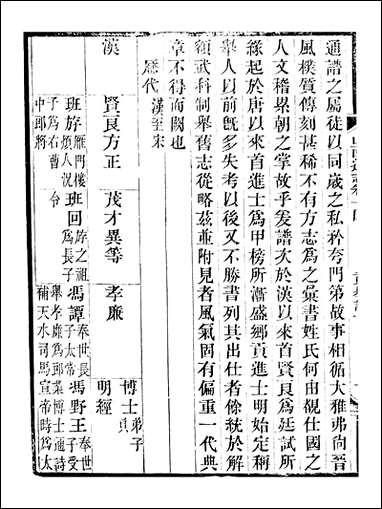 通譜之屬徒以同歲之私矜夸門第故事相循大雅弗尚晉
風樸質傳刻甚稀不有方志為之彙書姓氏何由覘仕國之
人文稽累朝之掌故乎爰譜次於漢以來首賢良為廷試所
緣起於唐以來首進士為甲榜所漸盛鄉貢進士明始定稱
舉人以前既多失考以後又不勝書列其出仕者餘統於解
額武科制舉舊志從略茲並附見者風氣固有偏重一代典
章不得而闕也
歷代 漢至宋
漢 賢良方正 茂才異等 孝廉 明經 博士弟子員
班㳺 鴈門樓煩人況子為右曹中郎將
班回 㳺之祖為長子令
馮譚 奉世長子太常舉孝廉為郎補天水司馬
馮野王 奉世子受業博士通詩宣帝時為太